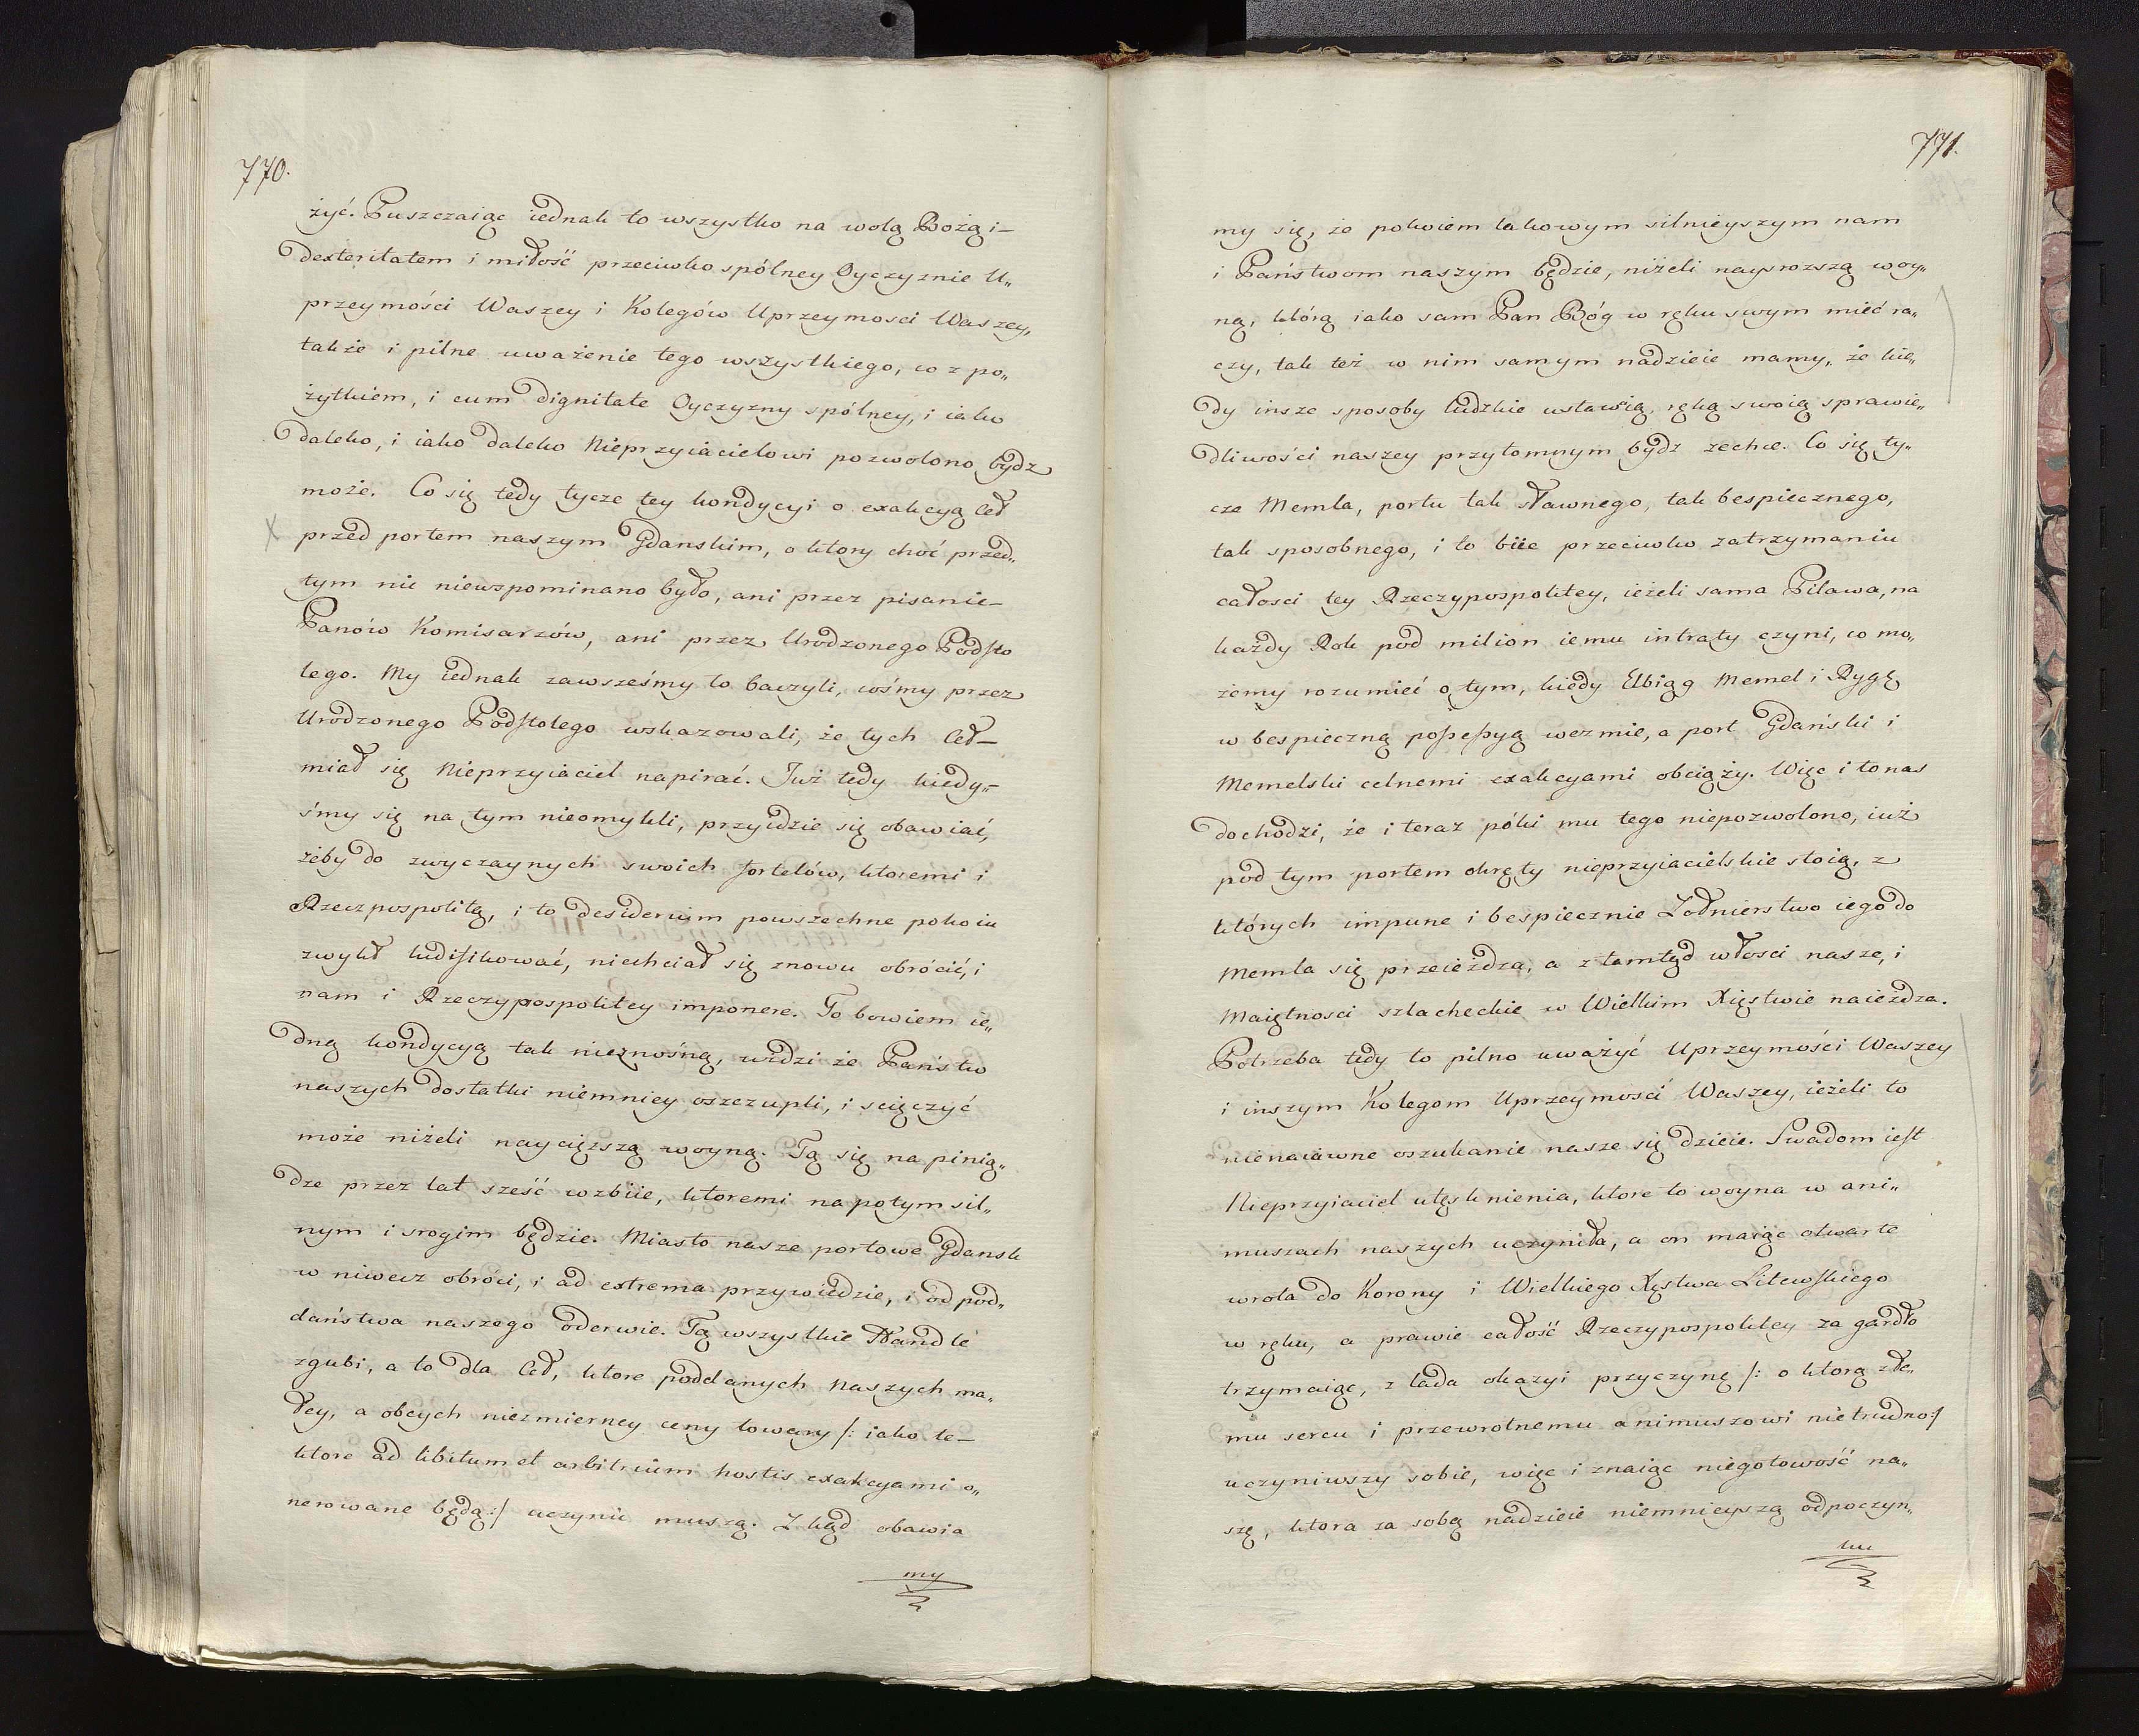 770.
żyć. Puszczaiąc iednak to wszystko na wolą Bożą i—
dexteritatem i miłość przeciwko spólney Oyczyznie U„
przeymości Waszey i Kolegów Uprzeymosci Waszey,
także i pilne uważenie tego wszystkiego, co z po„
żytkiem, i cum dignitate Oyczyzny spólney, i iako
daleko, i iako daleko Nieprzyiacielowi pozwolono bydz
może. Co się tedy tycze tey kondycyi o exakcyą Ceł
przed portem naszym Gdanskim, o ktory choć przed„
tym nic niewspominano było, ani przez pisanie—
Panów Komisarzów, ani przez Urodzonego Podsto
lego. My iednak zawsześmy to baczyli, cośmy przez
Urodzonego Podstolego wskazowali, że tych Ceł—
miał się Nieprzyiaciel napirać. Już tedy kiedy„
śmy się na tym nieomylili, przyidzie się obawiać,
żeby do zwyczaynych swoich fortelów, ktoremi i
Rzeczpospolitą, i to desiderium powszechne pokoiu
zwykł ludifikować, niechciał się znowu obrócić, i
nam i Rzeczypospolitey imponere. To bowiem ie„
dną kondycyą tak nieznośną, widzi że Państw
naszych dostatki niemniey oszczupli, i ścięczyć
może niżeli naycięższą woyną. Tą się na pinią„
dze przez lat sześć wzbiie, ktoremi napotym sil„
nym i srogim będzie. Miasto nasze portowe Gdansk
w niwecz obróci, i ad extrema przywiedzie, i od pod„
daństwa naszego oderwie. Tą wszystkie Handle
zgubi, a to dla Ceł, ktore poddanych Naszych ma„
łey, a obcych niezmierney ceny towary /: iako te—
ktore ad libitum et arbitrium hostis exakcyami o„
nerowane będą :/ uczynić muszą. Zkąd obawia
my
771.
my się, że pokoiem takowym silnieyszym nam
i Państwom naszym będzie, niżeli naysrozszą woy„
ną, którą iako sam Pan Bóg w ręku swym mieć ra„
czy, tak też w nim samym nadzieie mamy, że kie„
dy insze sposoby ludzkie ustawią, ręką swoią sprawie„
dliwości naszey przytomnym bydz zechce. Co się ty„
cze Memla, portu tak sławnego, tak bespiecznego,
tak sposobnego, i to biie przeciwko zatrzymaniu
całosci tey Rzeczypospolitey, ieżeli sama Pilawa, na
każdy Rok pod milion iemu intraty czyni, co mo„
żemy rozumieć o tym, kiedy Elbiąg Memel i Rygę
w bespieczną possessyą wezmie, a port Gdański i
Memelski celnemi exakcyami obciąży. Więc i to nas
dochodzi, że i teraz póki mu tego niepozwolono, iuż
pod tym portem okręty nieprzyiacielskie stoią, z
których impune i bespiecznie Zołnierstwo iego do
Memla się przeieżdza, a ztamtąd włosci nasze, i
Maiętnosci szlacheckie w Wielkim Xięstwie naieżdza.
Potrzeba tedy to pilno uważyć Uprzeymości Waszey
i inszym Kolegom Uprzeymości Waszey, ieżeli to
nienaiawne oszukanie nasze się dzieie. Swadom iest
Nieprzyiaciel utęsknienia, ktore to woyna w ani„
muszach naszych uczyniła, a on maiąc otwarte
wrota do Korony i Wielkiego Xęstwa Litewskiego
w ręku, a prawie całość Rzeczypospolitey za gardło
trzymaiąc, z lada okazyi przyczynę /: o ktorą złe„
mu sercu i przewrotnemu animuszowi nietrudno :/
uczyniwszy sobie, więc i znaiąc niegotowość na„
szę, ktora za sobą nadzieie niemnieyszą odpoczyn„
ku